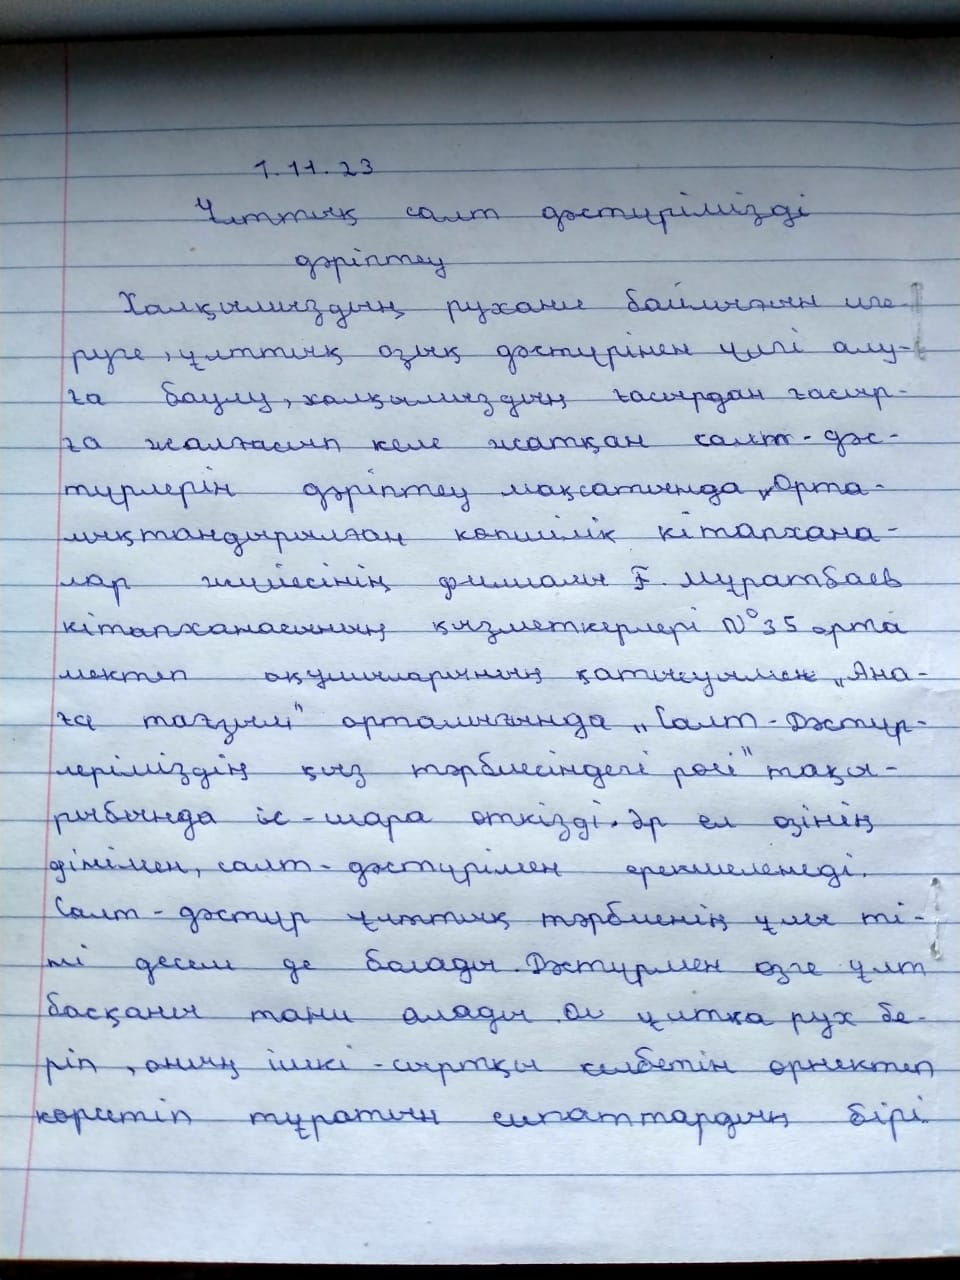 1.11.23
Ұлттық салт дәстүрімізді
дәріптеу
Халқымыздың рухани байлығын иге-
руге, ұлттық озық дәстүрінен үлгі алу-
ға баулу, халқымыздың ғасырдан ғасыр-
ға жалғасып келе жатқан салт-дәс-
түрлерін дәріптеу мақсатында „Орта-
лықтандырылған көпшілік кітапхана-
лар жүйесінің филиалы Ғ. Мұратбаев
кітапханасының қызметкерлері №35 орта
мектеп оқушыларының қатысуымен „Ана-
ға тағзым" орталығында „Салт-Дәстүр-
леріміздің қыз тәрбиесіндегі рөлі" тақы-
рыбында іс-шара өткізді. Әр ел өзінің
дінімен, салт-дәстүрімен ерекшеленеді.
Салт-дәстүр ұлттық тәрбиенің ұлы ті-
лі десем де болады. Дәстүрмен өзге ұлт
басқаны тани алады. Ол ұлтқа рух бе-
ріп, оның ішкі-сыртқы келбетін өрнектеп
көрсетіп тұратын сипаттардың бірі.